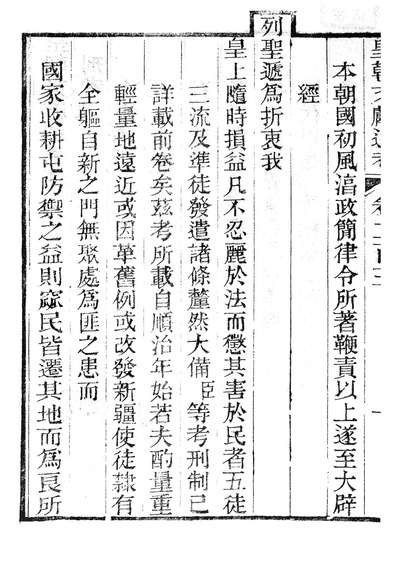 皇朝文獻通考 卷二百三 一
本朝國初風湻政簡律令所著鞭責以上遂至大辟
經
列聖遞為折衷我
皇上隨時損益凡不忍麗於法而懲其害於民者五徒
三流及準徒發遣諸條釐然大備臣等考刑制已
詳載前卷矣茲考所載自順治年始若夫酌量重
輕量地遠近或因革舊例或改發新疆使徒隸有
全軀自新之門無聚處為匪之患而
國家收耕屯防禦之益則竄民皆遷其地而為良所